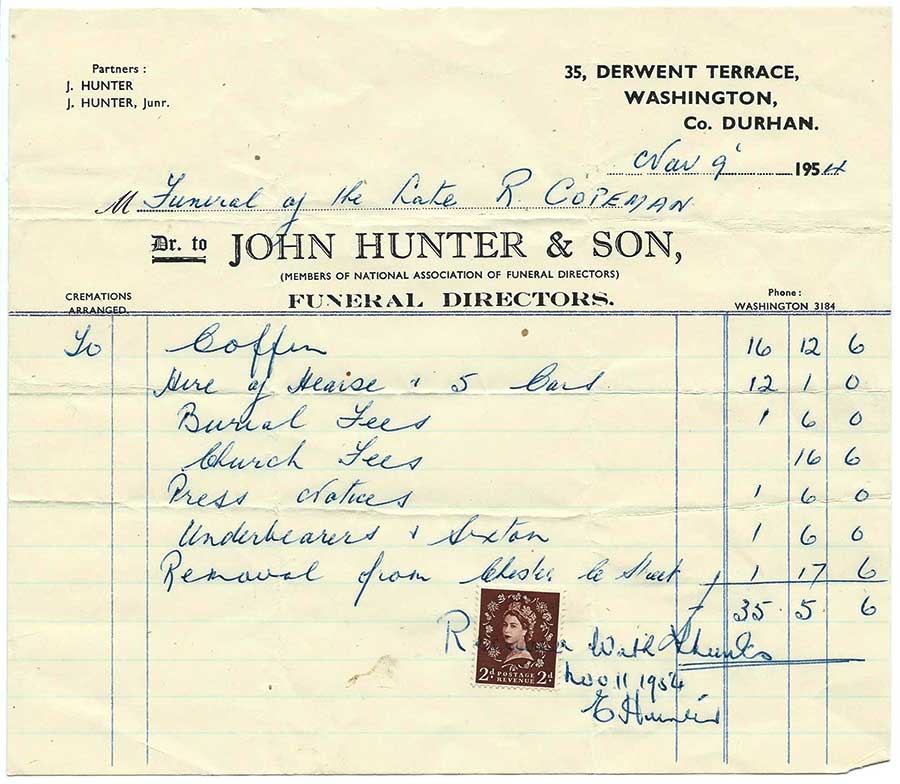 Partners :
J. HUNTER
J. HUNTER, Junr.
35, DERWENT TERRACE,
WASHINGTON,
Co. DURHAN.
Nov 9' 1954
M Funeral of the Late R. COPEMAN
Dr. to JOHN HUNTER & SON,
(MEMBERS OF NATIONAL ASSOCIATION OF FUNERAL DIRECTORS)
CREMATIONS
ARRANGED.
FUNERAL DIRECTORS.
Phone :
WASHINGTON 3184
To Coffin 16 12 6
Hire of Hearse & 5 Cars 12 1 0
Burial Fees 1 6 0
Church Fees 16 6
Press Notices 1 6 0
Underbearers & Sexton 1 6 0
Removal from Chester le Street 1 17 6
35 5 6
With Thanks
Nov 11 1954
E Hunter
2d POSTAGE REVENUE 2d